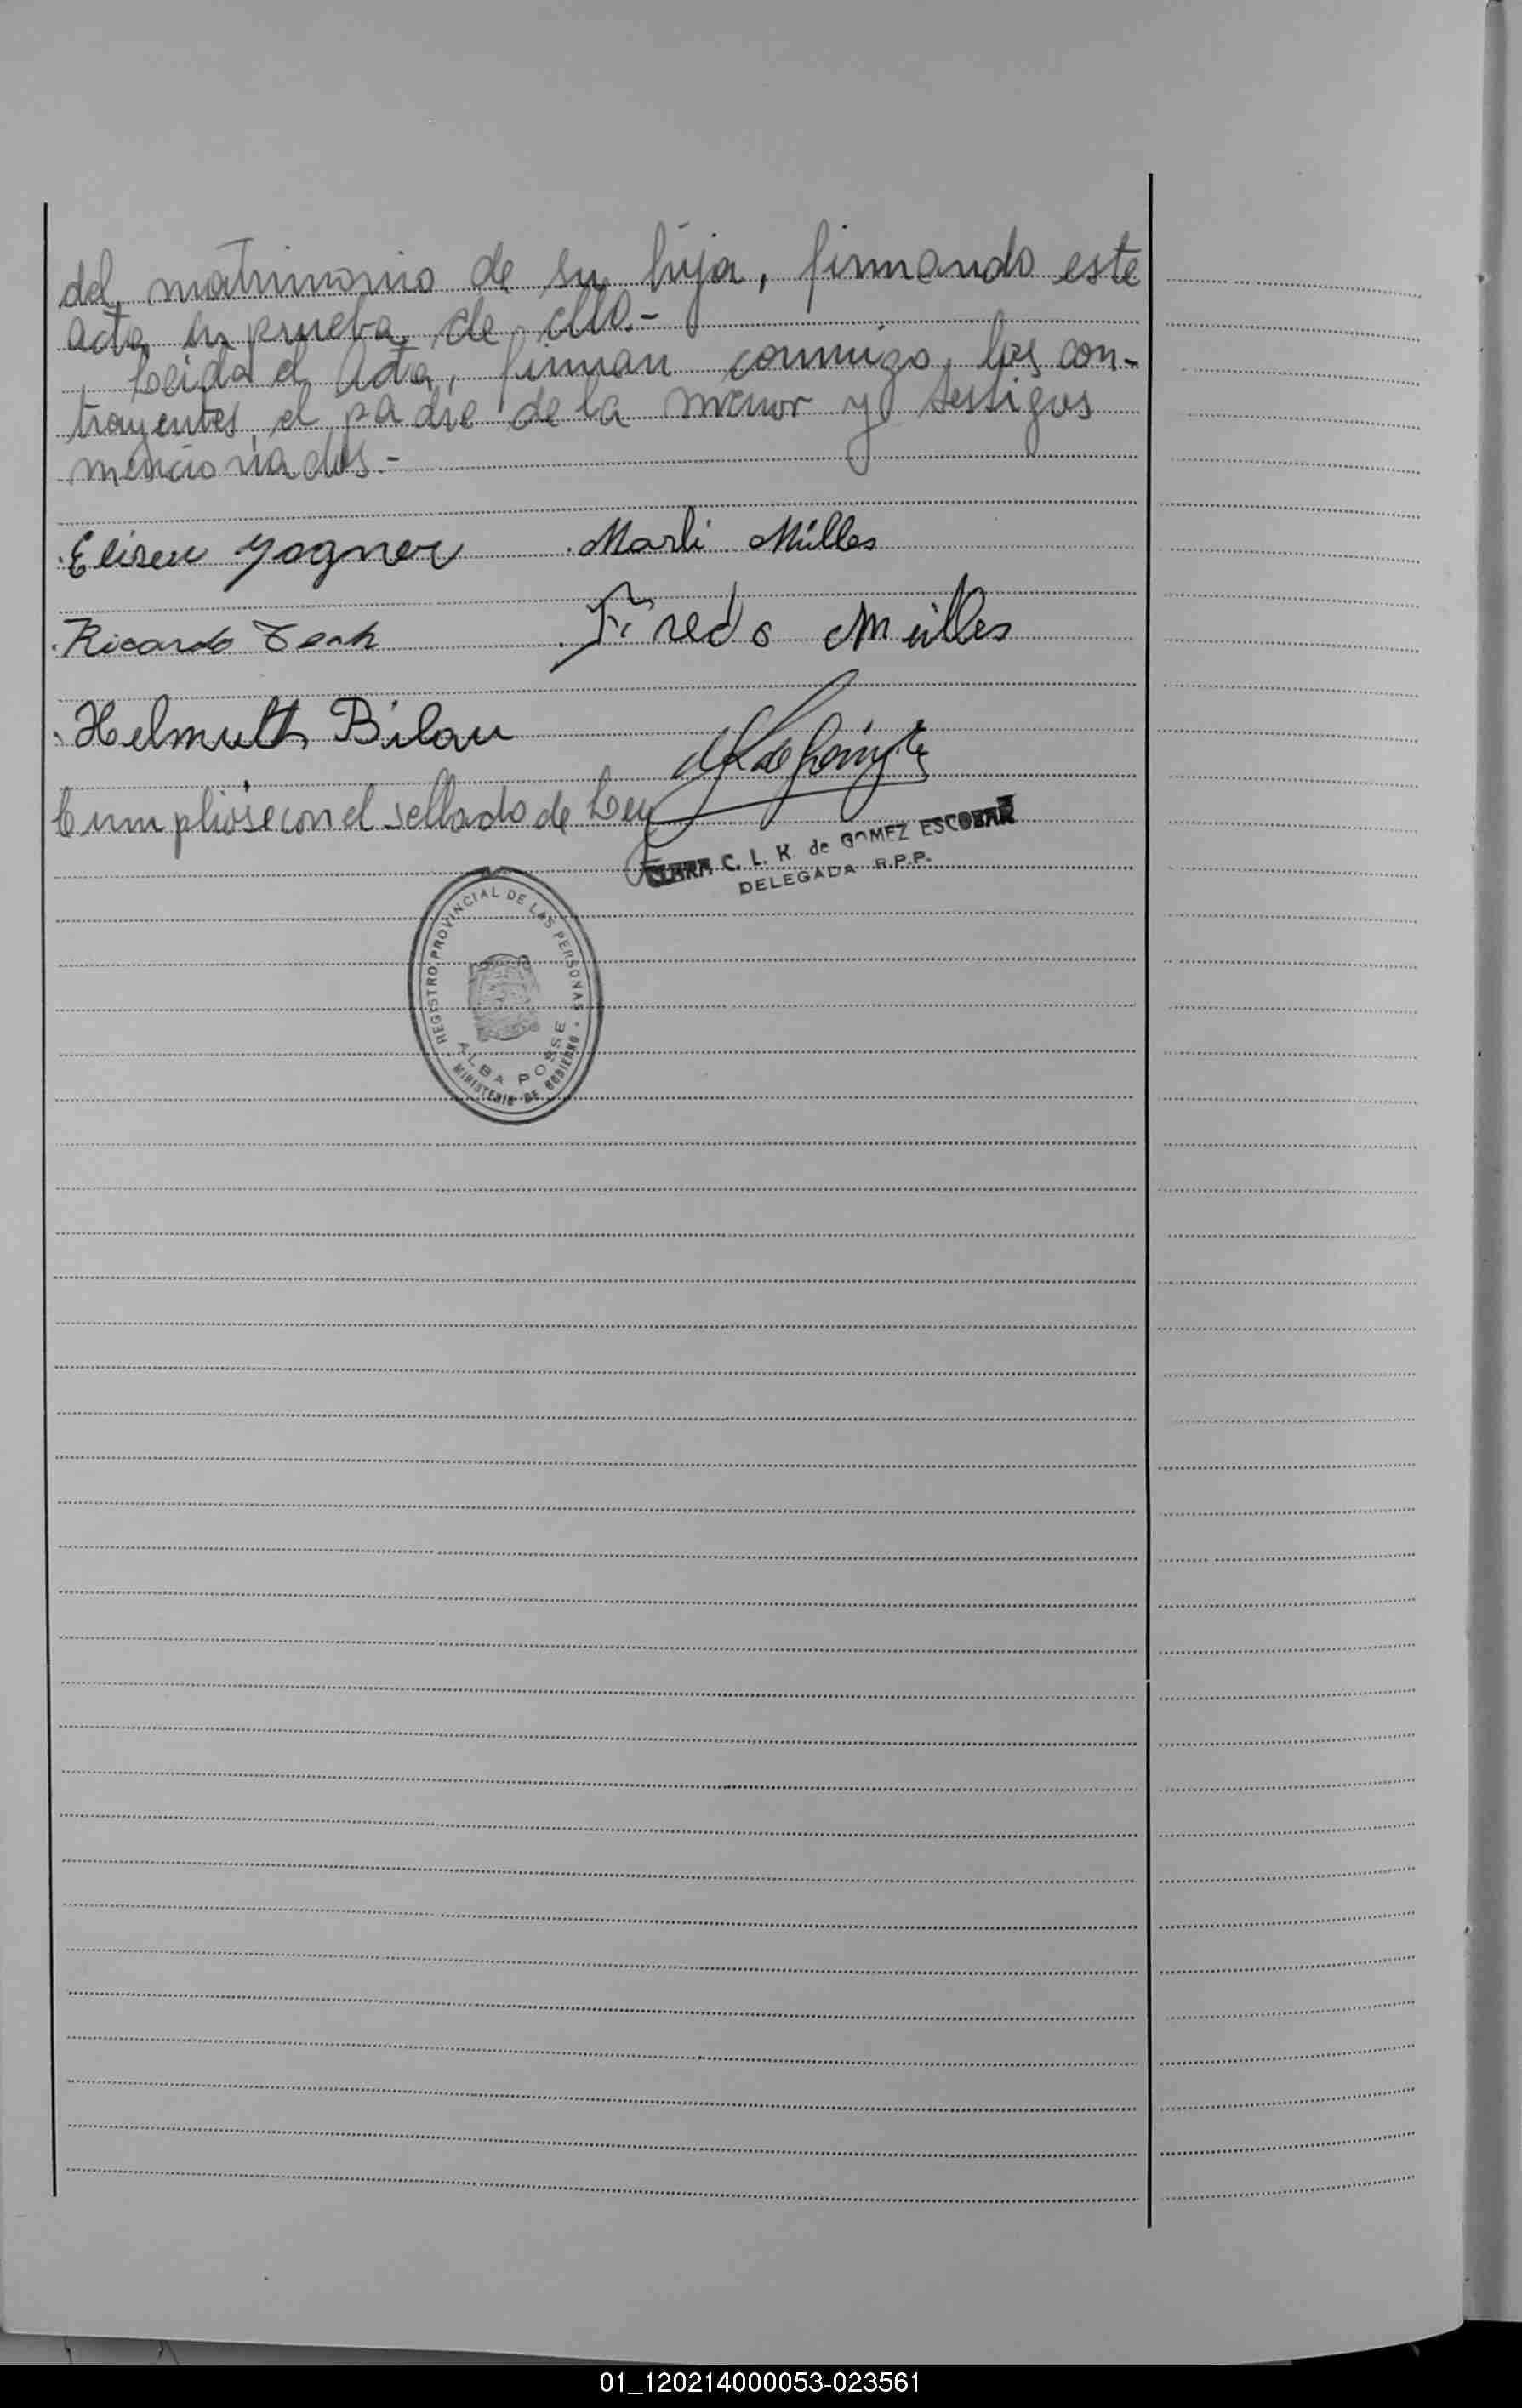 del matrimonio de su hija, firmando este
acta en prueba de ello.-
Leida el Acta, firman conmigo, los con-
trayentes, el padre de la menor y testigos
mencionados.-
Eliseu Yagner Marli Müller
Ricardo Fredo Müller
Helmuth Bilau
Cumpliose con el sellado de Ley
CLARA C. L. K. de GOMEZ ESCOBAR
DELEGADA R.P.P.
REGISTRO PROVINCIAL DE LAS PERSONAS
ALBA POSSE
MINISTERIO DE GOBIERNO
01_120214000053-023561